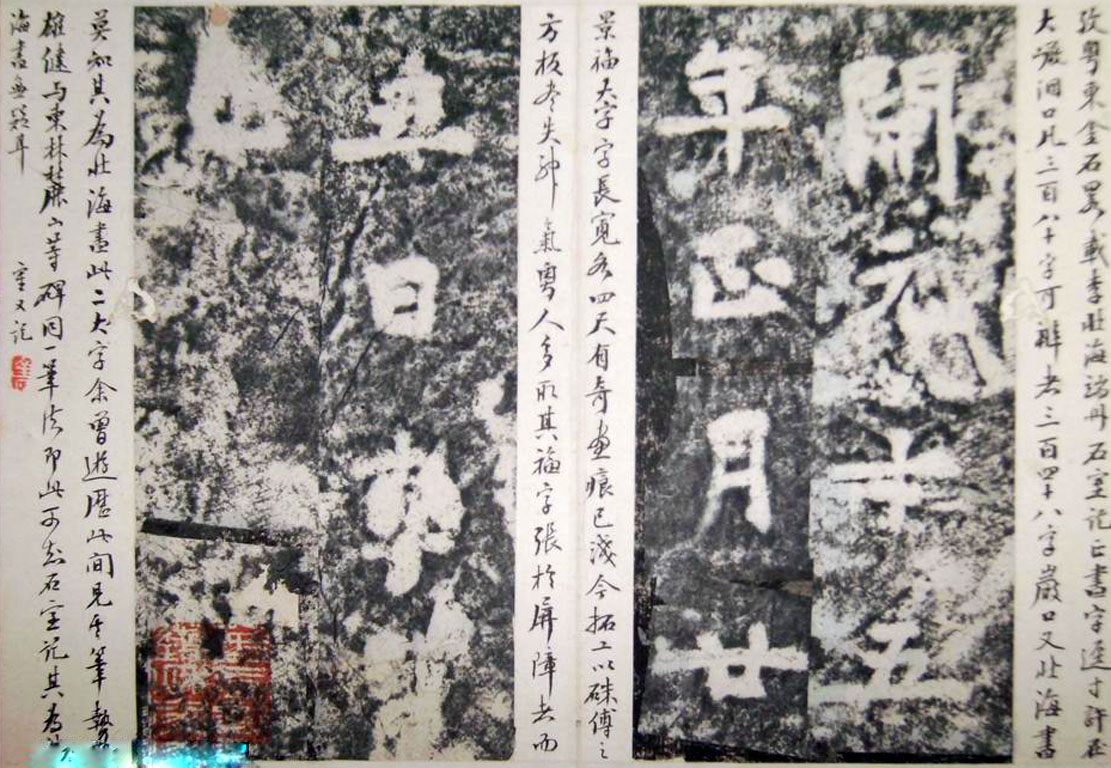 攷粤東金石畧載李北海端州石室記正書字逕寸許在
大巖洞口凡三百八十字可辨者三百四十八字巖口又北海書
開元十五
年正月廿
景福大字字長寬各四尺有奇画痕已淺今拓工以硃傅之
方板尽失神氣粤人多取其福字張於屏障去而
五日
莫知其為北海書此二大字余曾遊歷此間見其筆執
雄健与東林麓山等碑同一筆法即此可知石室記其為北
海書無疑耳
又記